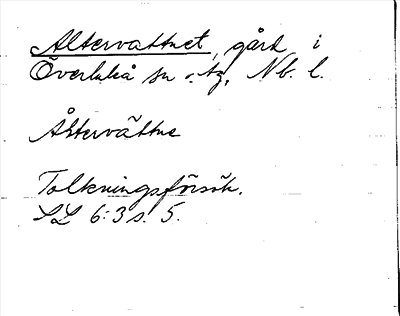 Altervattnet, gård i
Överluleå sn o. tg, Nb. l.
Åltervättne
Tolkningsförsök.
SL 6:3 s. 5.